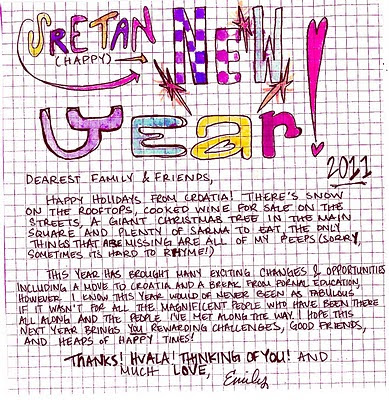 SRETAN NEW
(HAPPY)
Year!
2011
DEAREST FAMILY & FRIENDS,
HAPPY HOLIDAYS FROM CROATIA! THERE'S SNOW
ON THE ROOFTOPS, COOKED WINE FOR SALE ON THE
STREETS, A GIANT CHRISTMAS TREE IN THE MAIN
SQUARE AND PLENTY OF SARMA TO EAT, THE ONLY
THINGS THAT ARE MISSING ARE ALL OF MY PEEPS (SORRY,
SOMETIMES ITS HARD TO RHYME!)
THIS YEAR HAS BROUGHT MANY EXCITING CHANGES & OPPORTUNITIES
INCLUDING A MOVE TO CROATIA AND A BREAK FROM FORMAL EDUCATION.
HOWEVER I KNOW THIS YEAR WOULD OF NEVER BEEN AS FABULOUS
IF IT WASN'T FOR ALL THE MAGNIFICENT PEOPLE WHO HAVE BEEN THERE
ALL ALONG AND THE PEOPLE I'VE MET ALONG THE WAY. I HOPE THIS
NEXT YEAR BRINGS YOU REWARDING CHALLENGES, GOOD FRIENDS,
AND HEAPS OF HAPPY TIMES!
THANKS! HVALA! THINKING OF YOU! AND
MUCH LOVE,
Emily